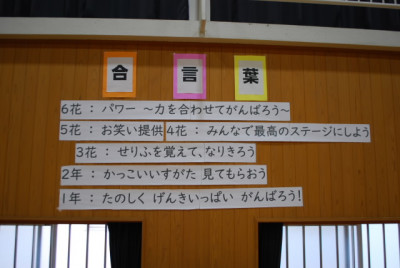 合言葉
6花 : パワー ～力を合わせてがんばろう～
5花 : お笑い提供 4花 : みんなで最高のステージにしよう
3花 : せりふを覚えて、なりきろう
2年 : かっこいいすがた 見てもらおう
1年 : たのしく げんきいっぱい がんばろう!